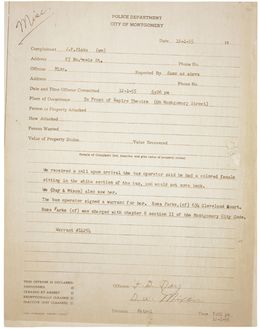 Misc
POLICE DEPARTMENT
CITY OF MONTGOMERY
Date 12-1-55 19
Complainant J.F. Blake (wm)
Address 27 No. Lewis St. Phone No.
Offense Misc. Reported By Same as above
Address Phone No.
Date and Time Offense Committed 12-1-55 6:06 pm
Place of Occurrence In Front of Empire Theatre (On Montgomery Street)
Person or Property Attacked
How Attacked
Person Wanted
Value of Property Stolen Value Recovered
Details of Complaint (list, describe and give value of property stolen)
We received a call upon arrival the bus operator said he had a colored female
sitting in the white section of the bus, and would not move back.
We (Day & Mixon) also saw her.
The bus operator signed a warrant for her. Rosa Parks, (cf) 634 Cleveland Court.
Rosa Parks (cf) was charged with chapter 6 section 11 of the Montgomery City Code.
Warrant #14254
THIS OFFENSE IS DECLARED:
UNFOUNDED
CLEARED BY ARREST
EXCEPTIONALLY CLEARED
INACTIVE (NOT CLEARED)
Officers F. B. Day
D. W. Mixon
Division Patrol
Time
12-1-55